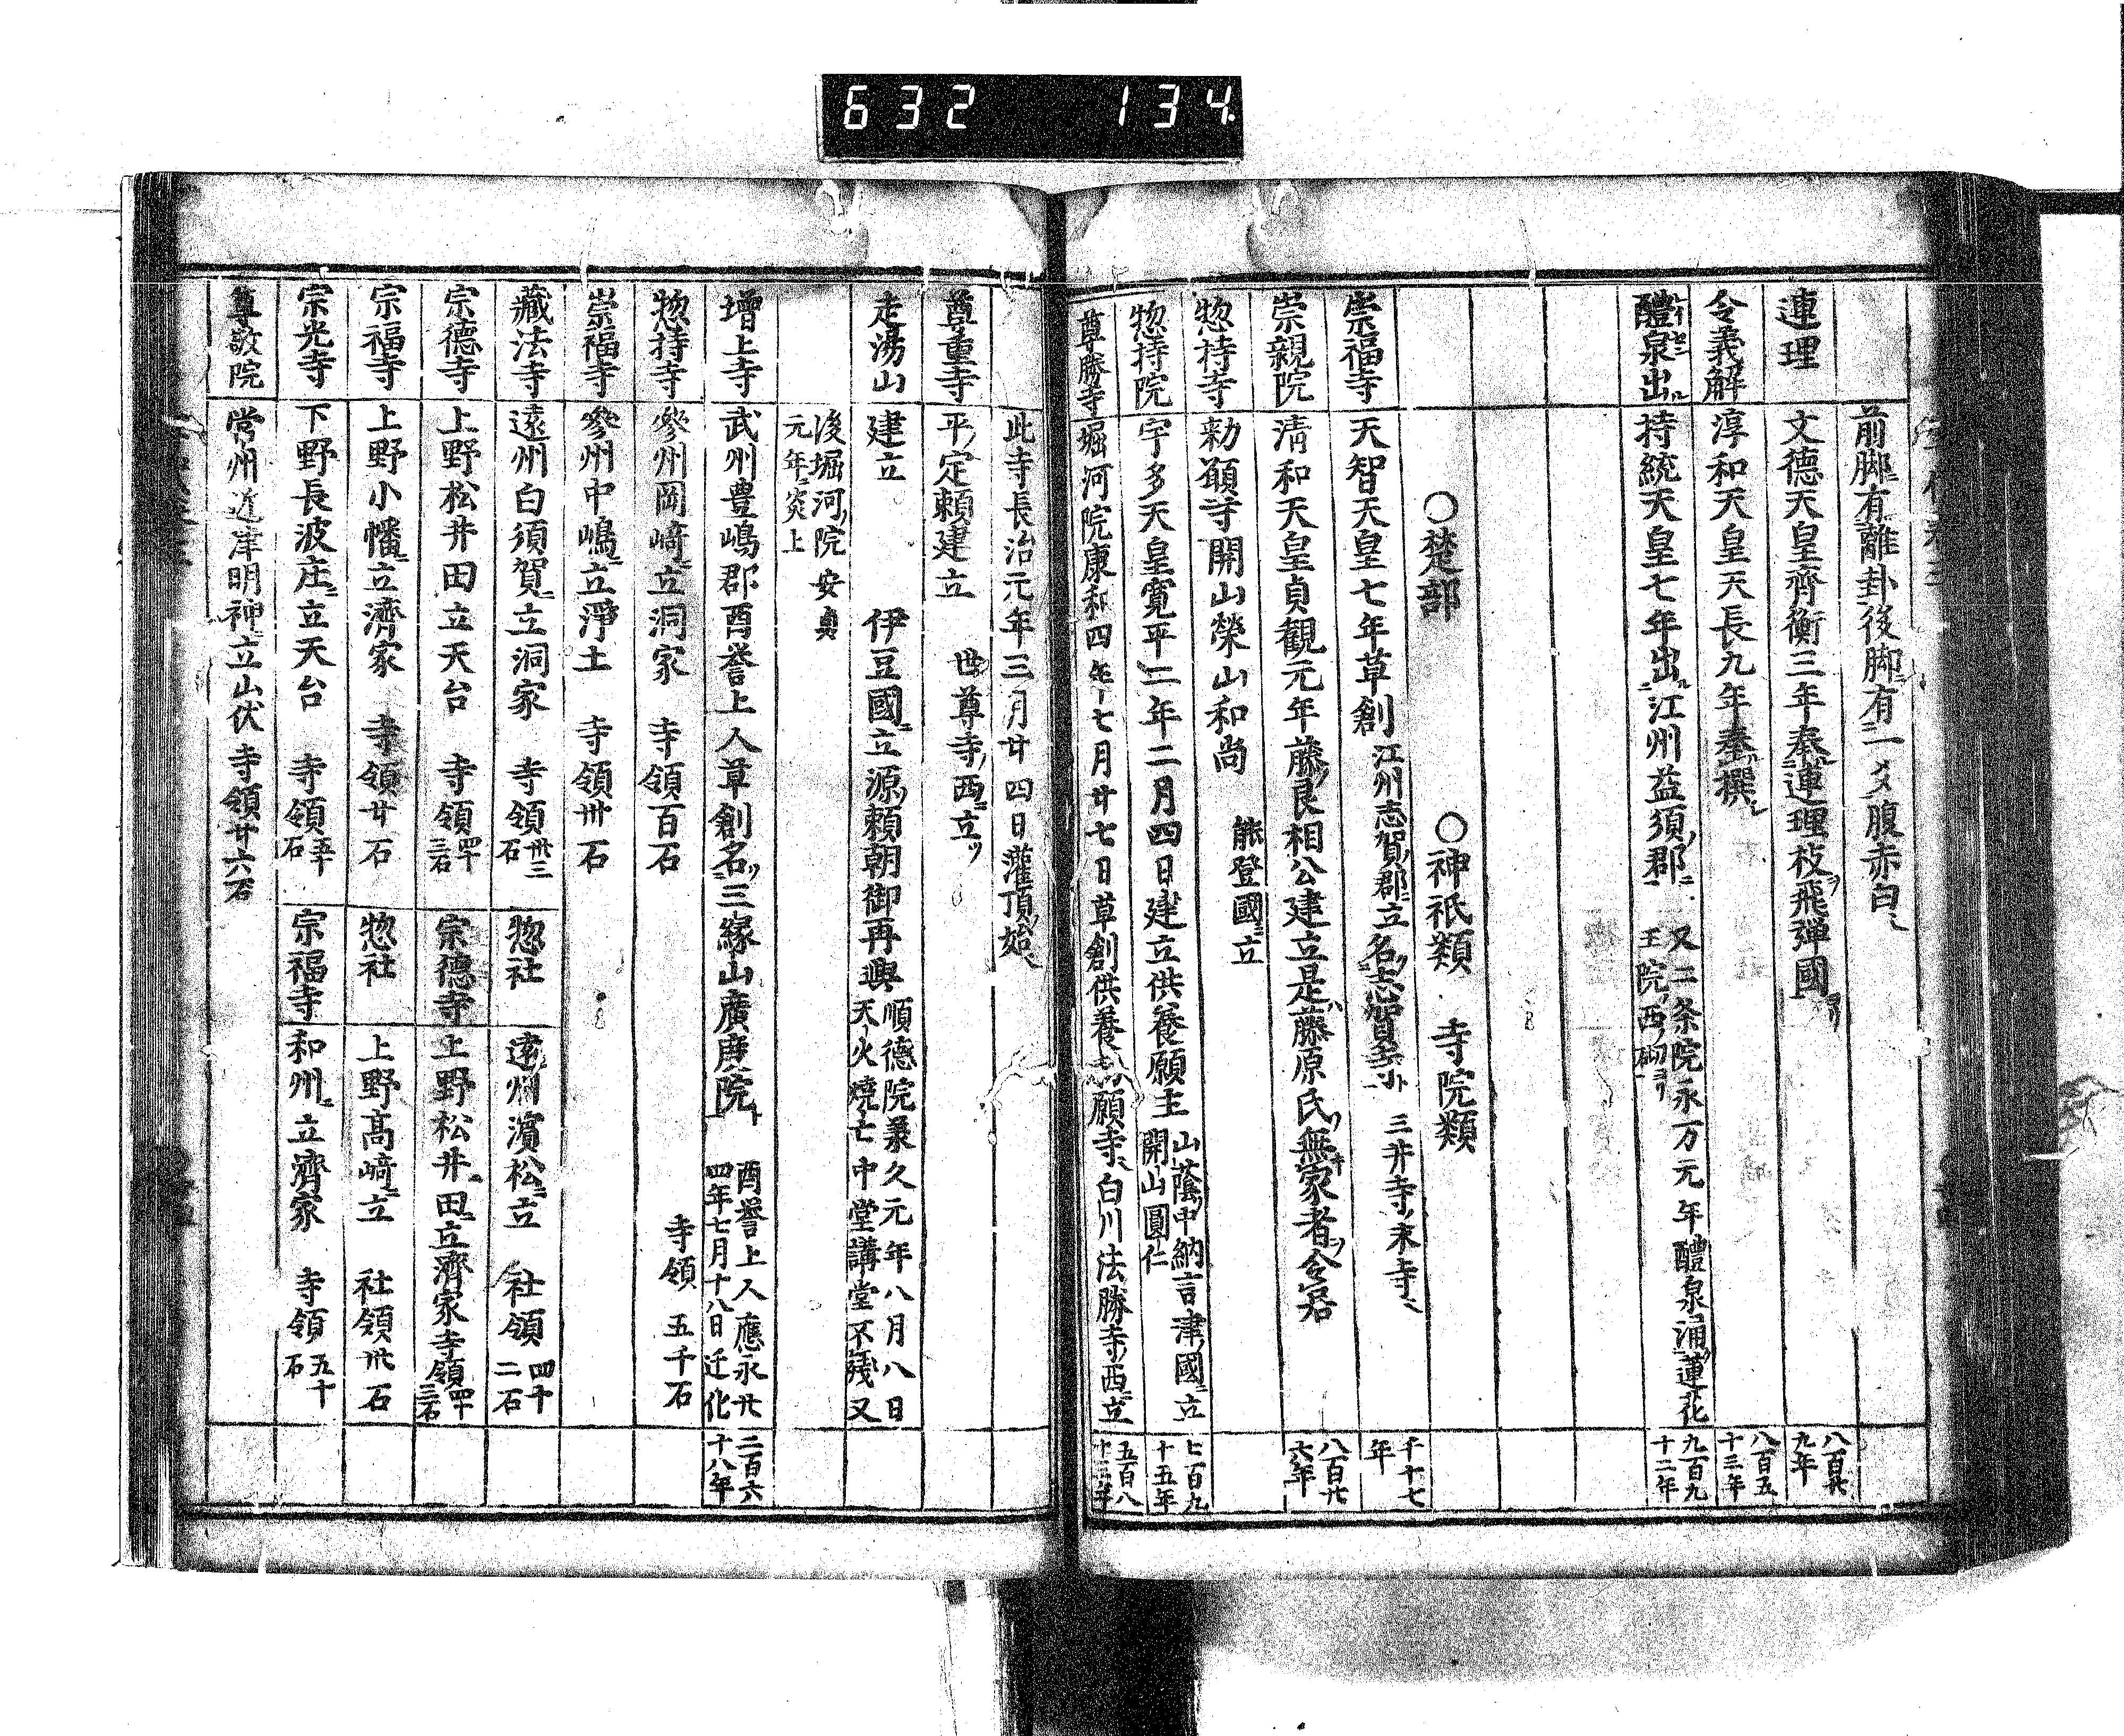 632 134
前脚ニ有離卦後脚ニ有一爻腹赤白
連理
文德天皇齊衡三年奉連理枝飛彈國
八百廿
九年
令義解
淳和天皇天長九年奉撰
八百五
十三年
醴泉出
持統天皇七年出江州益須郡
又二条院永万元年醴泉涌蓮花
王院西砌
九百九
十二年
〇楚部 〇神祇類 寺院類
崇福寺
天智天皇七年草創
江州志賀郡ニ立名志賀寺
三井寺末寺
千十七
年
崇親院
清和天皇貞観元年藤良相公建立是藤原氏無家者令居
八百廿
六年
惣持寺
勅願寺開山榮山和尚
能登國ニ立
惣持院
宇多天皇寛平二年二月四日建立供養願主
山蔭中納言津國ニ立
開山圓仁
七百九
十五年
尊勝寺
堀河院康和四年七月廿七日草創供養 願寺白川法勝寺西ニ立
五百八
十三年
此寺長治元年三月廿四日灌頂始
尊重寺
平定頼建立
世尊寺西ニ立
走湯山
建立
伊豆國ニ立源頼朝御再興
順德院承久元年八月八日
天火燒亡中堂講堂不残又
後堀河院安貞
元年ニ炎上
增上寺
武州豊嶋郡酉誉上人草創名三縁山廣度院
酉誉上人應永廿
四年七月十八日迁化
寺領 五千石
二百六
十八年
惣持寺
參州岡﨑ニ立洞家 寺領百石
崇福寺
參州中嶋ニ立淨土 寺領卅石
藏法寺
遠州白須賀ニ立洞家 寺領
卅三
石
惣社
遠州濵松ニ立 社領
四十
二石
宗德寺
上野松井田立天台 寺領
四十
三石
宗德寺
上野松井田ニ立濟家寺領
四十
三石
宗福寺
上野小幡ニ立濟家 寺領廿石
惣社
上野髙﨑ニ立 社領卅石
宗光寺
下野長波庄ニ立天台 寺領
五十
石
宗福寺
和州ニ立濟家 寺領
五十
石
尊敬院
常州近津明神ニ立山伏寺領廿六石